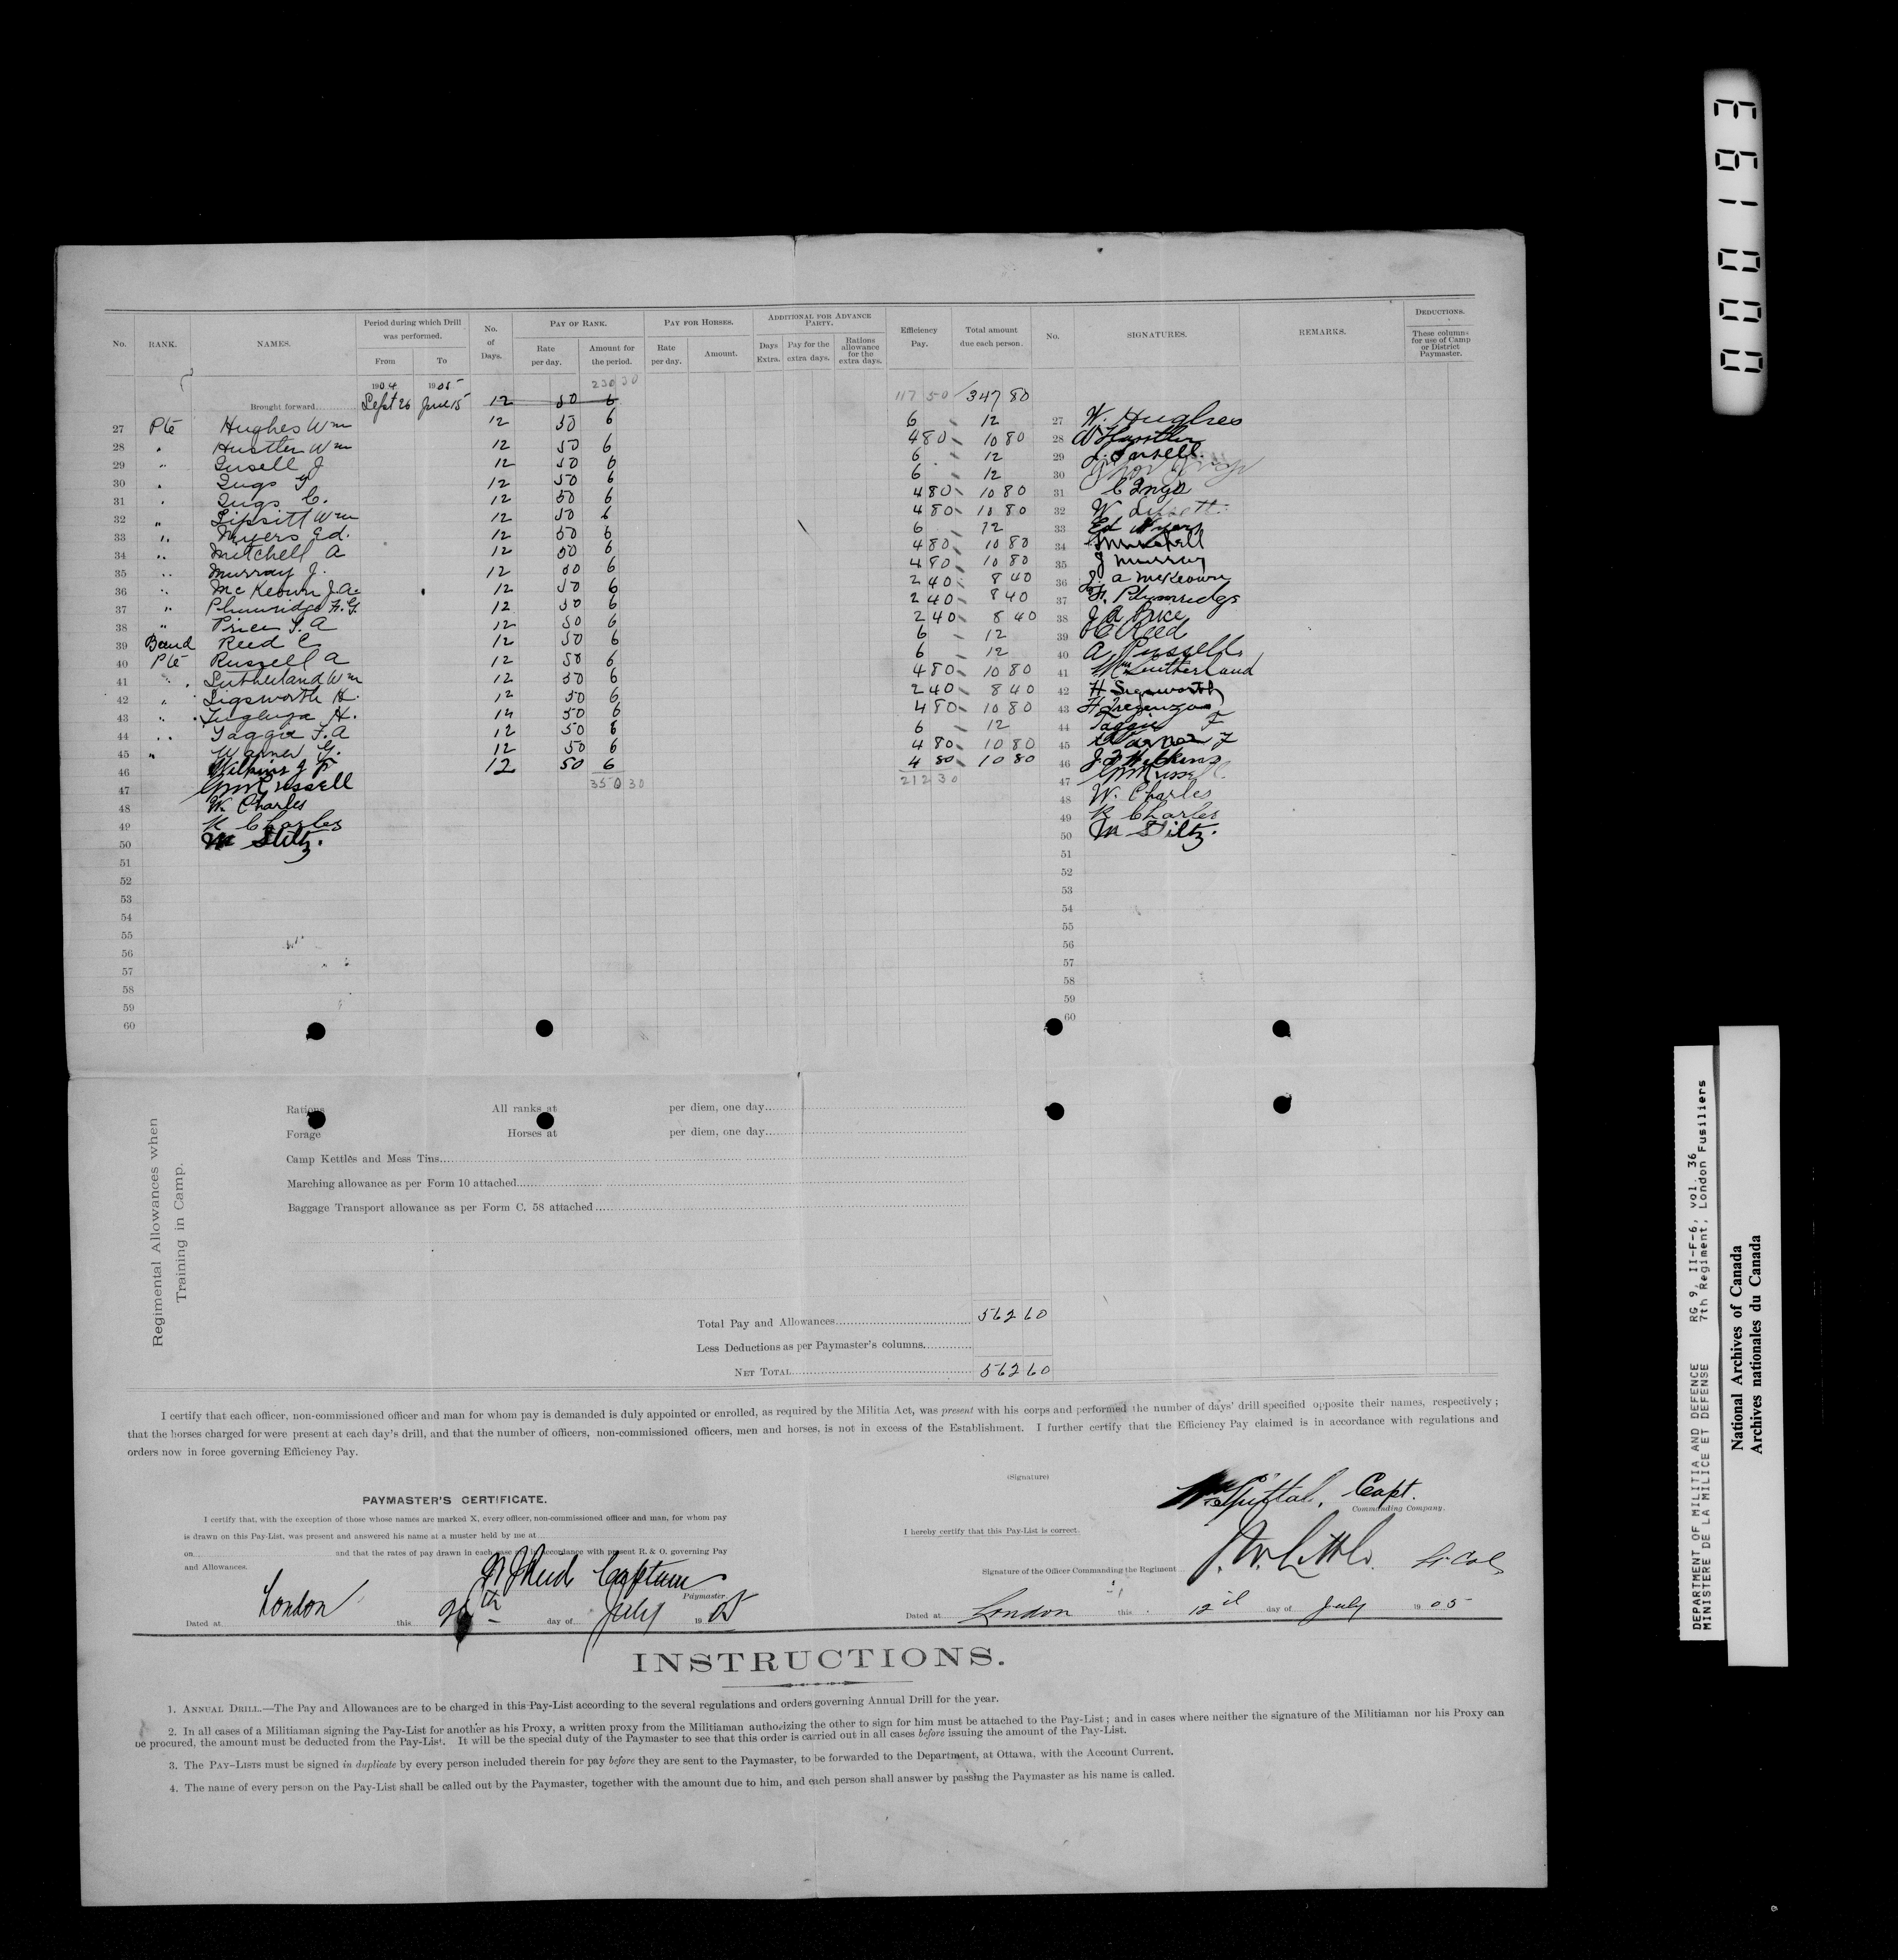 No. RANK. NAMES. Period during which Drill was performed. From To No. of Days. PAY OF RANK. Rate per day. Amount for the period. PAY FOR HORSES. Rate per day. Amount. ADDITIONAL FOR ADVANCE PARTY. Days Extra. Pay for the extra days. Rations allowance for the extra days. Efficiency Pay. Total amount due each person. No. SIGNATURES. REMARKS. DEDUCTIONS. These columns for use of Camp or District Paymaster.
1904 1905 230 30
Brought forward Sept 26 June 15 12 50 6 117 50 347 80
27 Pte Hughes Wm 12 50 6 6 12 27 W. Hughes
28 " Hustler Wm 12 50 6 4 80 10 80 28 W Hustler
29 " Insell J 12 50 6 6 12 29 J. Insell
30 " Ings 12 50 6 6 12 30
31 " Ings C. 12 50 6 4 80 10 80 31 C Ings
32 " Lipsitt Wm 12 50 6 4 80 10 80 32 W Lipsitt
33 " Myers Ed. 12 50 6 6 12 33 Ed Myers
34 " Mitchell A 12 50 6 4 80 10 80 34 Mitchell
35 " Murray J. 12 50 6 4 80 10 80 35 J Murray
36 " McKeown J.A. 12 50 6 2 40 8 40 36 J. A McKeown
37 " Plumridge F.G. 12 50 6 2 40 8 40 37 F. Plumridge
38 " Price J. A 12 50 6 2 40 8 40 38 J A Price
39 Band Reed C 12 50 6 6 12 39 C Reed
40 Pte Russell A 12 50 6 6 12 40 A Russell
41 " Sutherland Wm 12 50 6 4 80 10 80 41 Wm Sutherland
42 " Sigsworth H. 12 50 6 2 40 8 40 42 H Sigsworth
43 " H. 12 50 6 4 80 10 80 43 H Tregenza
44 " Taggie F.A 12 50 6 6 12 44 Taggie F
45 " Warner G. 12 50 6 4 80 10 80 45
46 Wilkins J F 12 50 6 4 80 10 80 46 J F Wilkins
47 GM Russell 350 30 212 30 47 GM Russell
48 W. Charles 48 W. Charles
49 R Charles 49 R Charles
50 M Stiltz. 50 M Stiltz.
51 51
52 52
53 53
54 54
55 55
56 56
57 57
58 58
59 59
60 60
Regimental Allowances when Training in Camp.
Rations All ranks at per diem, one day
Forage Horses at per diem, one day
Camp Kettles and Mess Tins
Marching allowance as per Form 10 attached
Baggage Transport allowance as per Form C. 58 attached
Total Pay and Allowances 562 60
Less Deductions as per Paymaster's columns
NET TOTAL 562 60
I certify that each officer, non-commissioned officer and man for whom pay is demanded is duly appointed or enrolled, as required by the Militia Act, was present with his corps and performed the number of days' drill specified opposite their names, respectively;
that the horses charged for were present at each day's drill, and that the number of officers, non-commissioned officers, men and horses, is not in excess of the Establishment. I further certify that the Efficiency Pay claimed is in accordance with regulations and
orders now in force governing Efficiency Pay.
PAYMASTER'S CERTIFICATE.
I certify that, with the exception of those whose names are marked X, every officer, non-commissioned officer and man, for whom pay
is drawn on this Pay-List, was present and answered his name at a muster held by me at
on and that the rates of pay drawn in each case are in accordance with present R. & O. governing Pay
and Allowances.
Captain
Paymaster
Dated at London this 26th day of July 1905
(Signature)
Capt.
Commanding Company.
I hereby certify that this Pay-List is correct.
Signature of the Officer Commanding the Regiment J. W. Little. Lt. Col
Dated at London this 12th day of July 1905
INSTRUCTIONS.
1. ANNUAL DRILL.—The Pay and Allowances are to be charged in this Pay-List according to the several regulations and orders governing Annual Drill for the year.
2. In all cases of a Militiaman signing the Pay-List for another as his Proxy, a written proxy from the Militiaman authorizing the other to sign for him must be attached to the Pay-List; and in cases where neither the signature of the Militiaman nor his Proxy can
be procured, the amount must be deducted from the Pay-List. It will be the special duty of the Paymaster to see that this order is carried out in all cases before issuing the amount of the Pay-List.
3. The PAY-LISTS must be signed in duplicate by every person included therein for pay before they are sent to the Paymaster, to be forwarded to the Department, at Ottawa, with the Account Current.
4. The name of every person on the Pay-List shall be called out by the Paymaster, together with the amount due to him, and each person shall answer by passing the Paymaster as his name is called.
000193
DEPARTMENT OF MILITIA AND DEFENCE RG 9, II-F-6, vol. 36
MINISTERE DE LA MILICE ET DEFENSE 7th Regiment, London Fusiliers
National Archives of Canada
Archives nationales du Canada